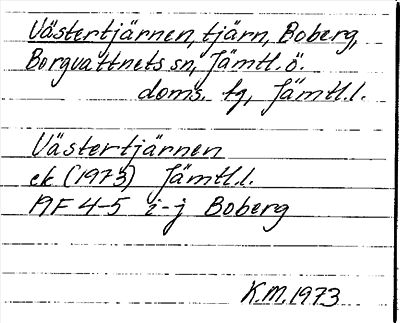 Västertjärnen, tjärn, Boberg,
Borgvattnets sn, Jämtl. ö.
doms. tg, Jämtl. l.
Västertjärnen
ek (1973) Jämtl. l.
19F 4-5 i-j Boberg
K.M. 1973